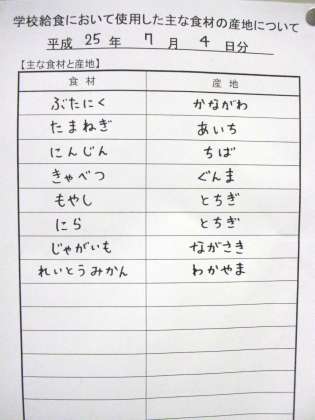 学校給食において使用した主な食材の産地について
平成 25 年 7 月 4 日分
【主な食材と産地】
食材 産地
ぶたにく かながわ
たまねぎ あいち
にんじん ちば
きゃべつ ぐんま
もやし とちぎ
にら とちぎ
じゃがいも ながさき
れいとうみかん わかやま